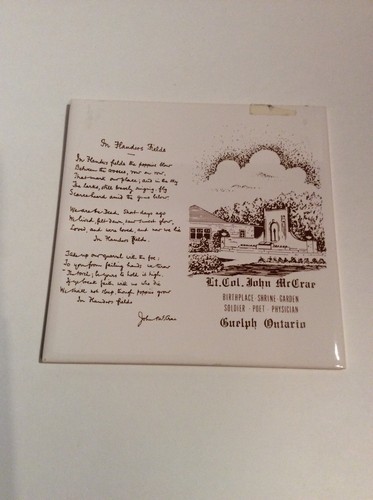 In Flanders Fields
In Flanders fields the poppies blow
Between the crosses, row on row,
That mark our place; and in the sky
The larks, still bravely singing, fly
Scarce heard amid the guns below.
We are the Dead. Short days ago
We lived, felt dawn, saw sunset glow,
Loved, and were loved, and now we lie
In Flanders fields.
Take up our quarrel with the foe:
To you from failing hands we throw
The torch; be yours to hold it high.
If ye break faith with us who die
We shall not sleep, though poppies grow
In Flanders fields
John McCrae
Lt. Col. John McCrae
BIRTHPLACE · SHRINE · GARDEN
SOLDIER · POET · PHYSICIAN
Guelph Ontario